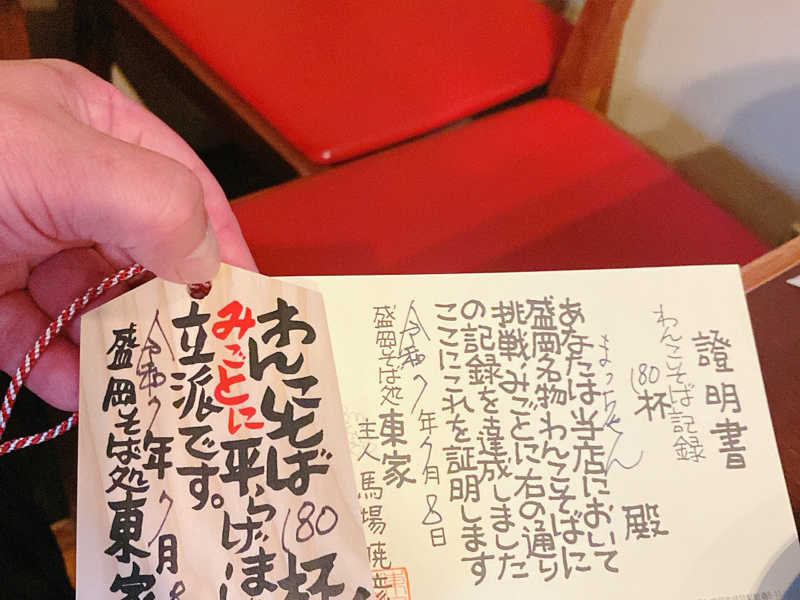 わんこそば
180杯
みごとに平らげま
立派です。
令和7年7月8
盛岡そば処東家
證明書
わんこそば記録
180杯
まっちゃん殿
あなたは当店において
盛岡名物わんこそばに
挑戦、みごとに右の通り
の記録を達成しました
ここにこれを証明します
令和7年7月8日
盛岡そば処東家
主人馬場暁